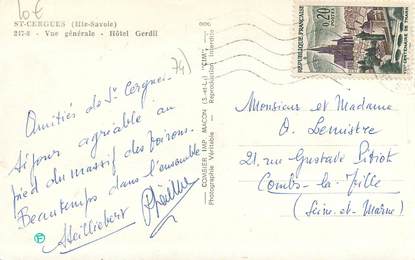 10€
ST-CERGUES (Hte-Savoie)
247-8 - Vue générale - Hôtel Gerdil
74)
Amitiés de St Cergues.
Séjour agréable au
pied du massif des Voirons.
Beautemps dans l'ensemble
COMBIER IMP. MACON (S.-et-L.) "CIM"
Photographie Véritable - Reproduction Interdite
REPUBLIQUE FRANÇAISE
0,20
POSTES
Monsieur et Madame
O. Lemistre
21, rue Gustave
Combs-la-Ville
(Seine-et-Marne)